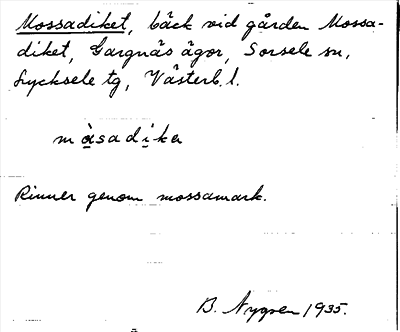 Mossadiket, bäck vid gården Mossa-
diket, Gargnäs ägor, Sorsele sn,
Lycksele tg, Västerb. l.
måsadika
Rinner genom mossamark.
B. Nygren 1935.